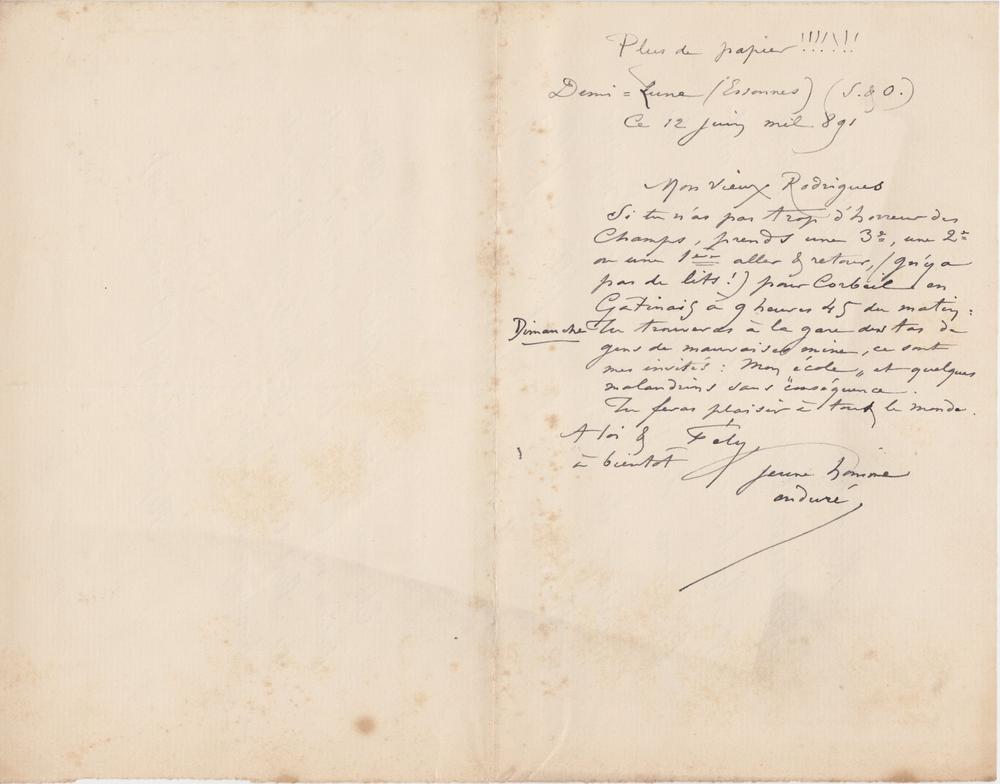 Plus de papier !!!!!!!
Demi = Lune (Essonnes) (S. & O.)
Ce 12 juin mil 891
Mon vieux Rodrigues
Si tu n'as pas trop d'horreur des
Champs, prends une 3e, une 2e
ou une 1ère aller & retour, (qu'y a
pas de lits !) pour Corbeil en
Gatinais à 9 heures 45 du matin :
Dimanche Tu trouveras à la gare des tas de
gens de mauvaises mine, ce sont
mes invités : Mon école „ et quelques
malandrins sans "conséquence.
Tu feras plaisir à tout le monde.
A toi & Fély,
à bientôt
jeune homme
enduré